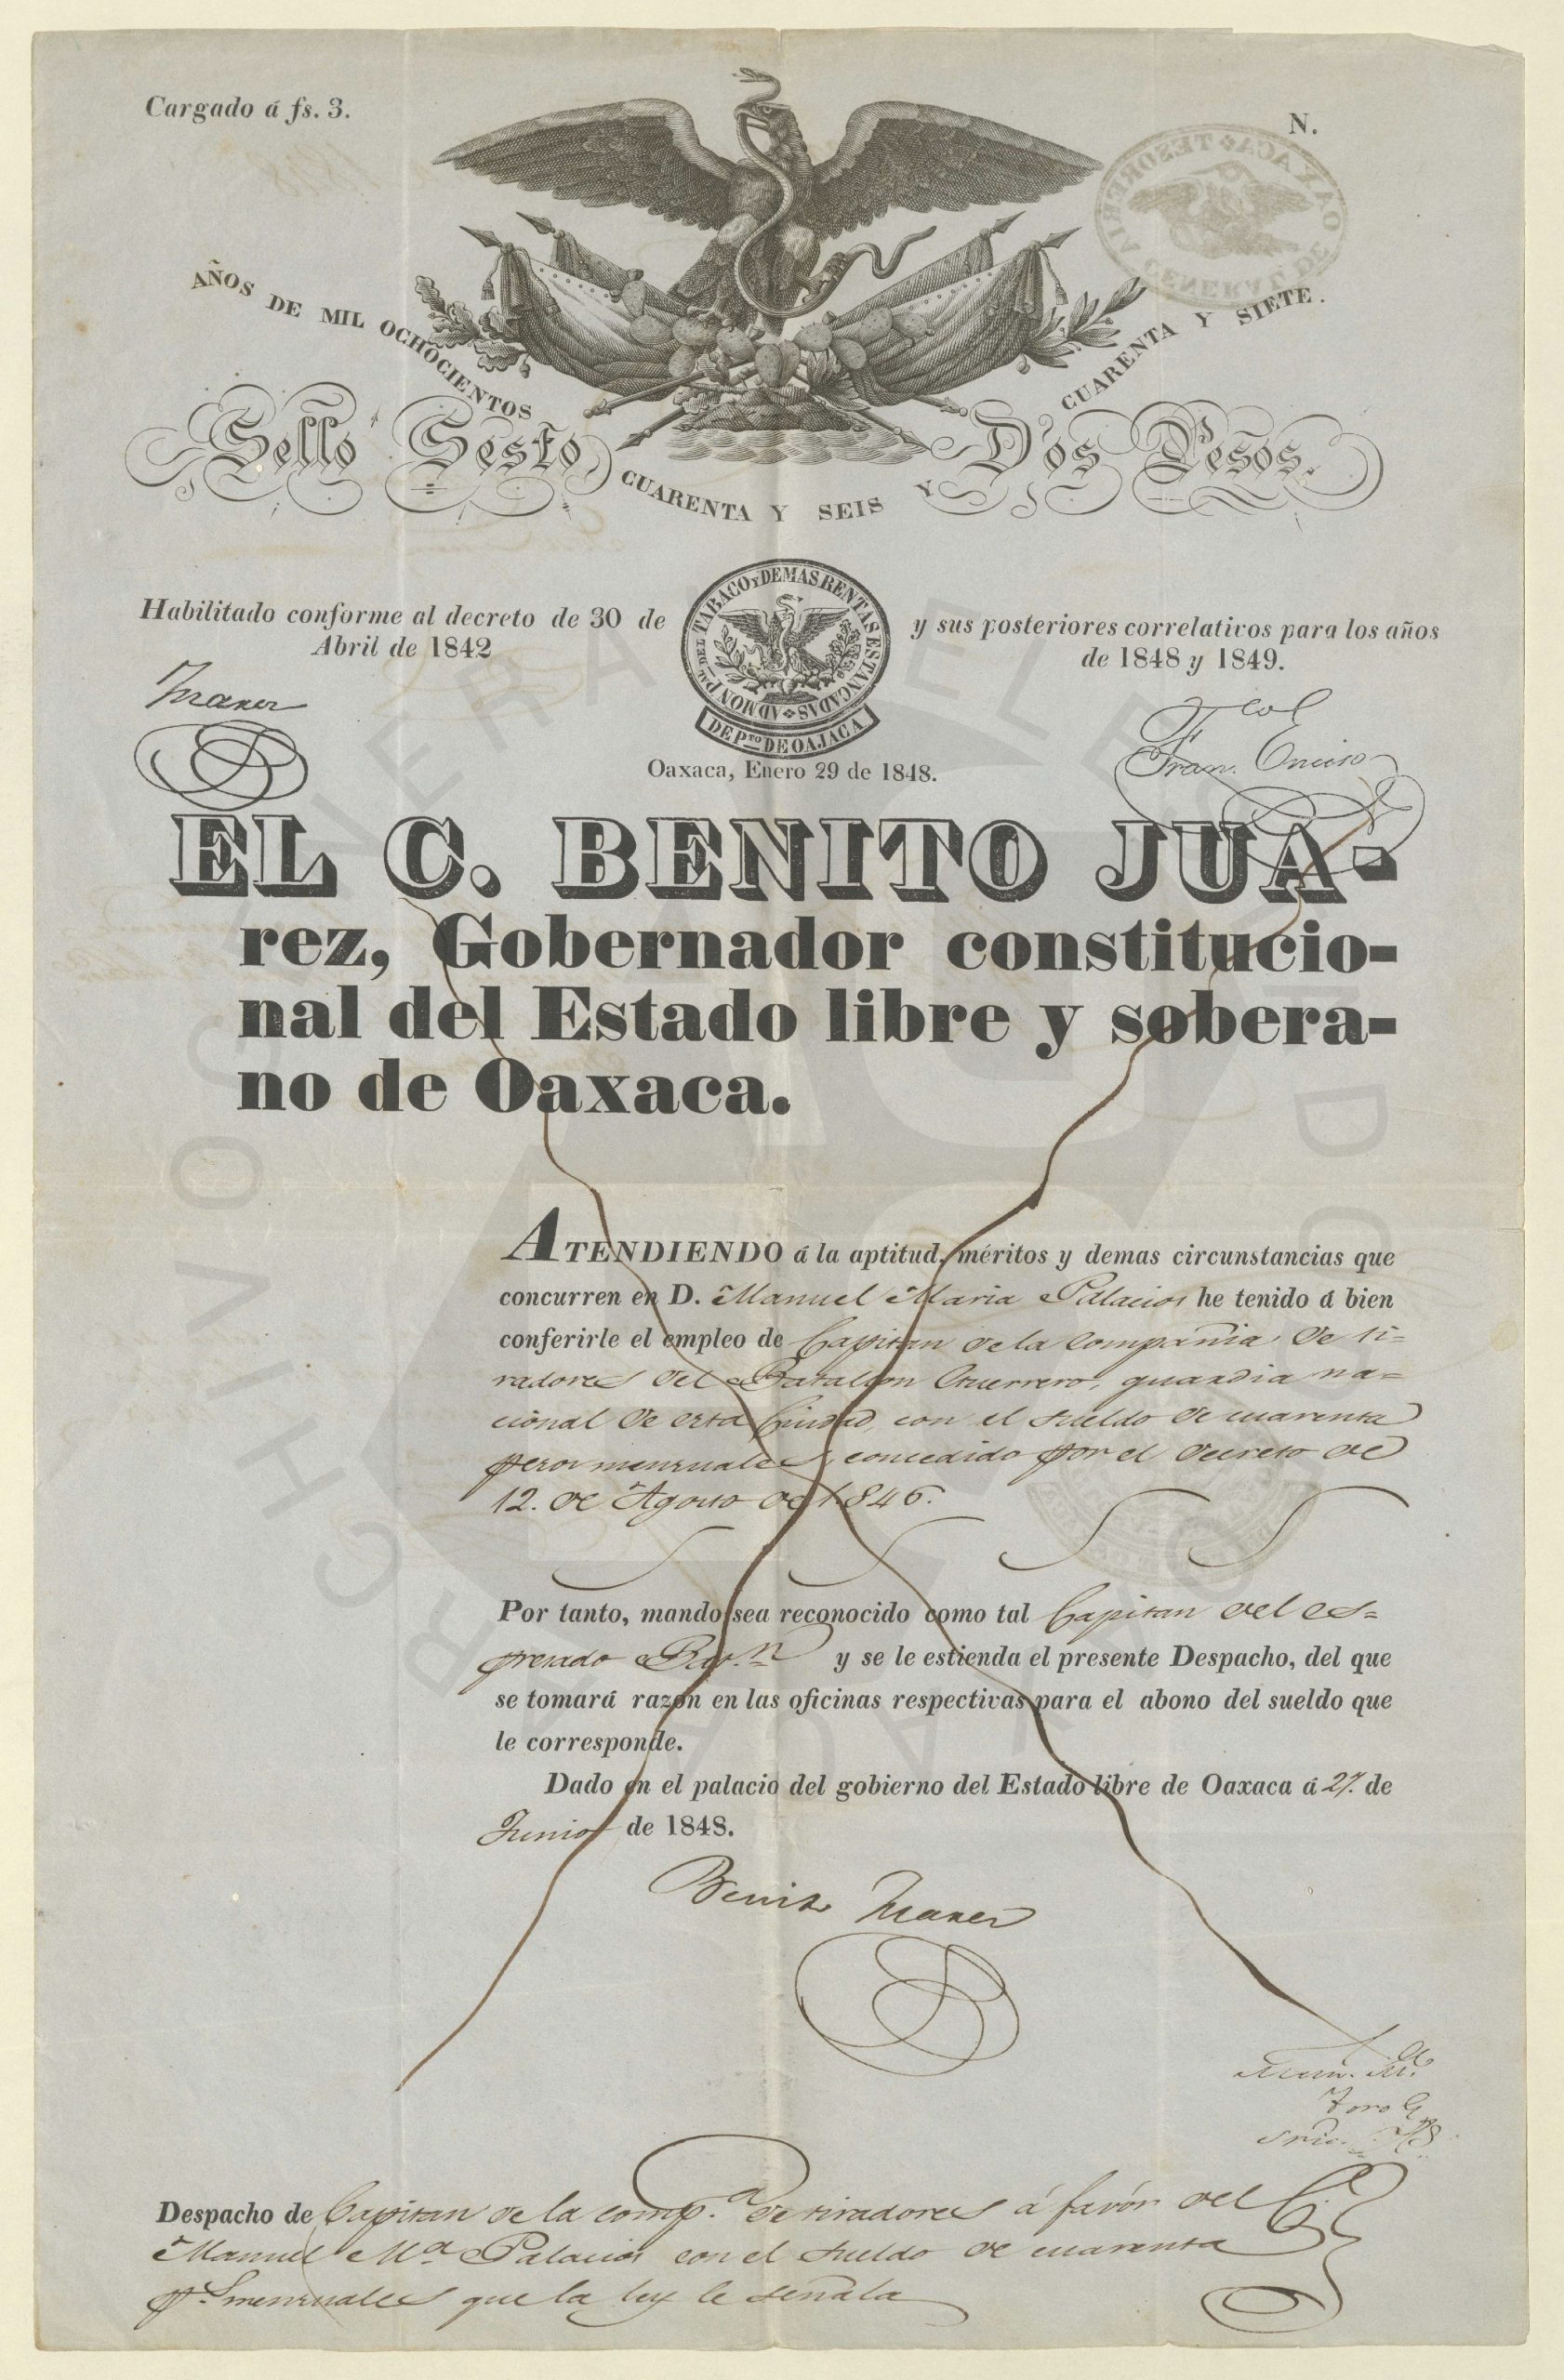 Cargado á fs. 3.
N.
AÑOS DE MIL OCHOCIENTOS CUARENTA Y SEIS Y CUARENTA Y SIETE.
Sello Sesto Dos Pesos.
Habilitado conforme al decreto de 30 de
Abril de 1842
y sus posteriores correlativos para los años
de 1848 y 1849.
ADMON PAL. DEL TABACO Y DEMAS RENTAS ESTANCADAS
DEPTO DE OAJACA
Juarez
Fran. Enciso
Oaxaca, Enero 29 de 1848.
EL C. BENITO JUA-
rez, Gobernador constitucio-
nal del Estado libre y sobera-
no de Oaxaca.
ATENDIENDO á la aptitud, méritos y demas circunstancias que
concurren en D. Manuel Maria Palacios he tenido á bien
conferirle el empleo de Capitan de la Compañia de ti=
radores del Batallon Guerrero, guardia na=
cional de esta Ciudad, con el sueldo de cuarenta
pesos mensuales, concedido por el decreto de
12. de Agosto de 1846.
Por tanto, mando sea reconocido como tal Capitan del es=
presado Bat.n y se le estienda el presente Despacho, del que
se tomará razon en las oficinas respectivas para el abono del sueldo que
le corresponde.
Dado en el palacio del gobierno del Estado libre de Oaxaca á 27. de
Junio de 1848.
Benito Juarez
Despacho de Capitan de la comp.a de tiradores á favór del C.
Manuel Ma Palacios con el sueldo de cuarenta
p.s mensuales que la ley le señala
ARCHIVO GENERAL DEL ESTADO DE OAXACA